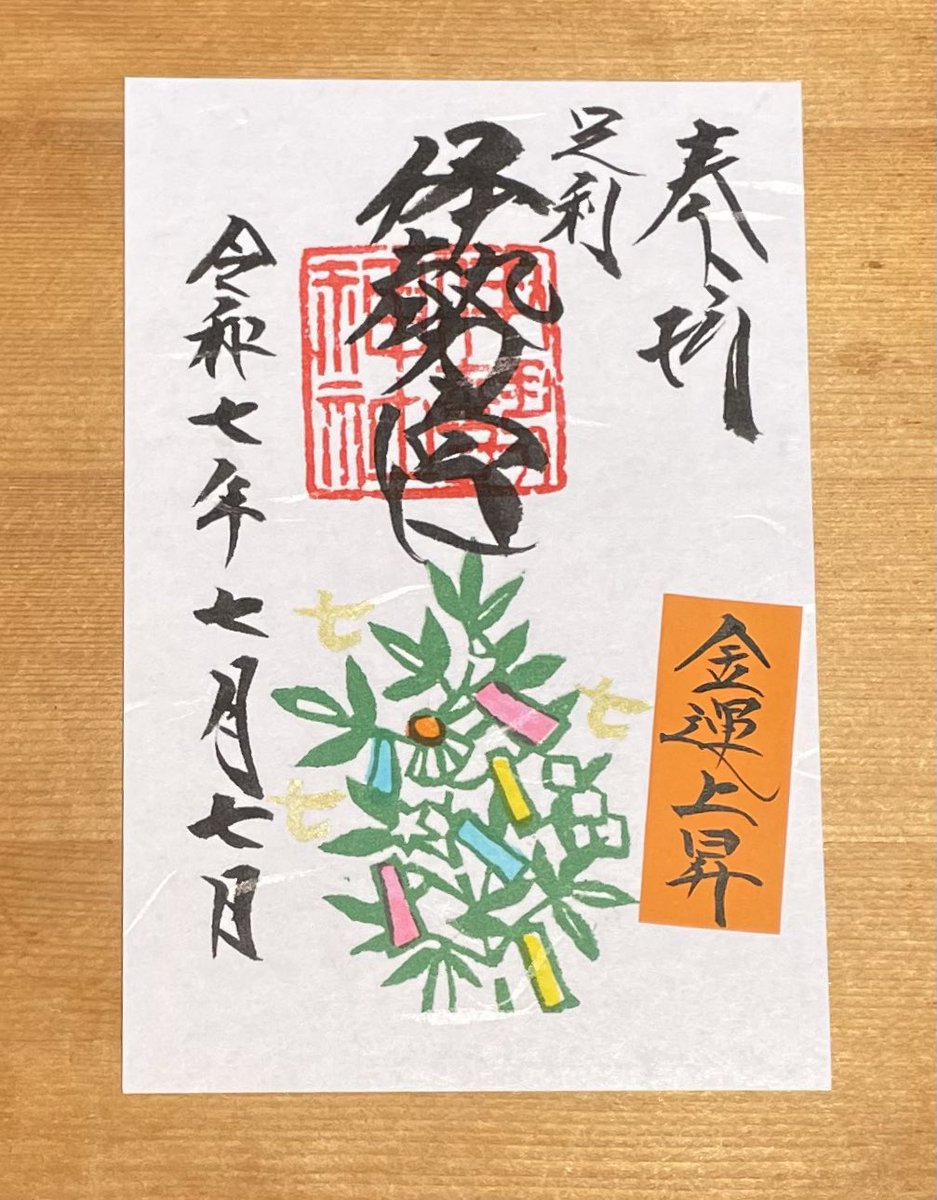 奉拝
足利
伊勢
令和七年七月七日
七
七
七
金運上昇